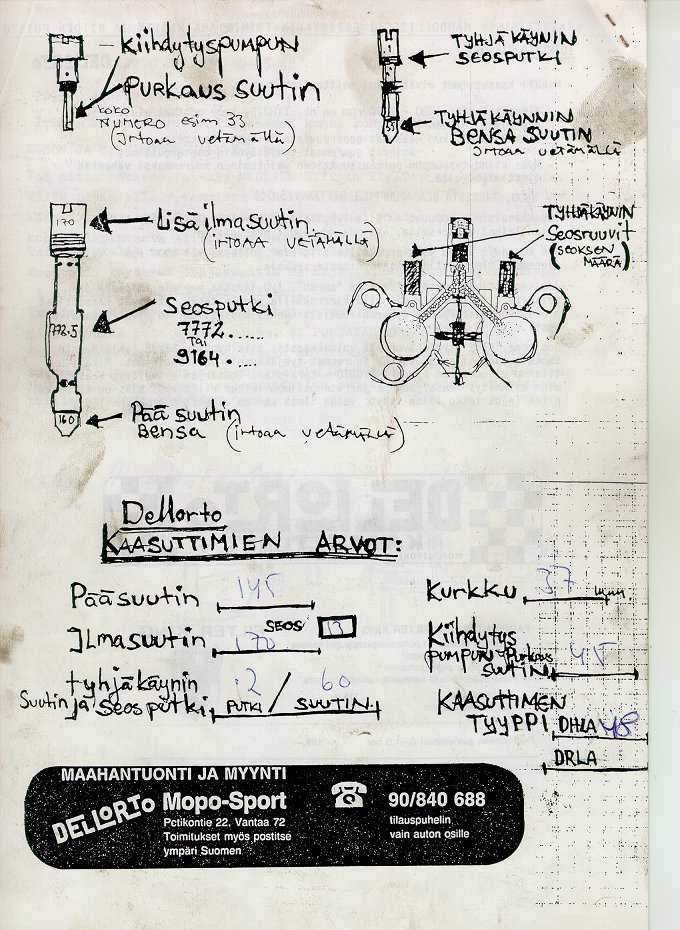 Kiihdytyspumpun
Purkaus suutin
koko
NUMERO esim 33
(Irtoaa vetämällä)
TYHJÄKÄYNIN
SEOSPUTKI
1
TYHJÄKÄYNNIN
BENSA SUUTIN
Irtoaa vetämällä
170
Lisä ilmasuutin
(irtoaa vetämällä)
7772.5
Seosputki
7772......
TAI
9164.....
160
Pää suutin
Bensa (irtoaa vetämällä)
TYHJÄKÄYNIN
Seosruuvit
(SEOKSEN
MÄÄRÄ)
Dellorto
KAASUTTIMIEN ARVOT:
Pääsuutin 145
Ilmasuutin 170 SEOS
tyhjäkäynin
Suutin ja seosputki .2 / 60
PUTKI SUUTIN
Kurkku 37 mm.
Kiihdytys
pumpun Purkaus
suutin 45
KAASUTTIMEN
TYYPPI DHLA 48
DRLA
MAAHANTUONTI JA MYYNTI
DELLORTO Mopo-Sport
Potikontie 22, Vantaa 72
Toimitukset myös postitse
ympäri Suomen
90/840 688
tilauspuhelin
vain auton osille